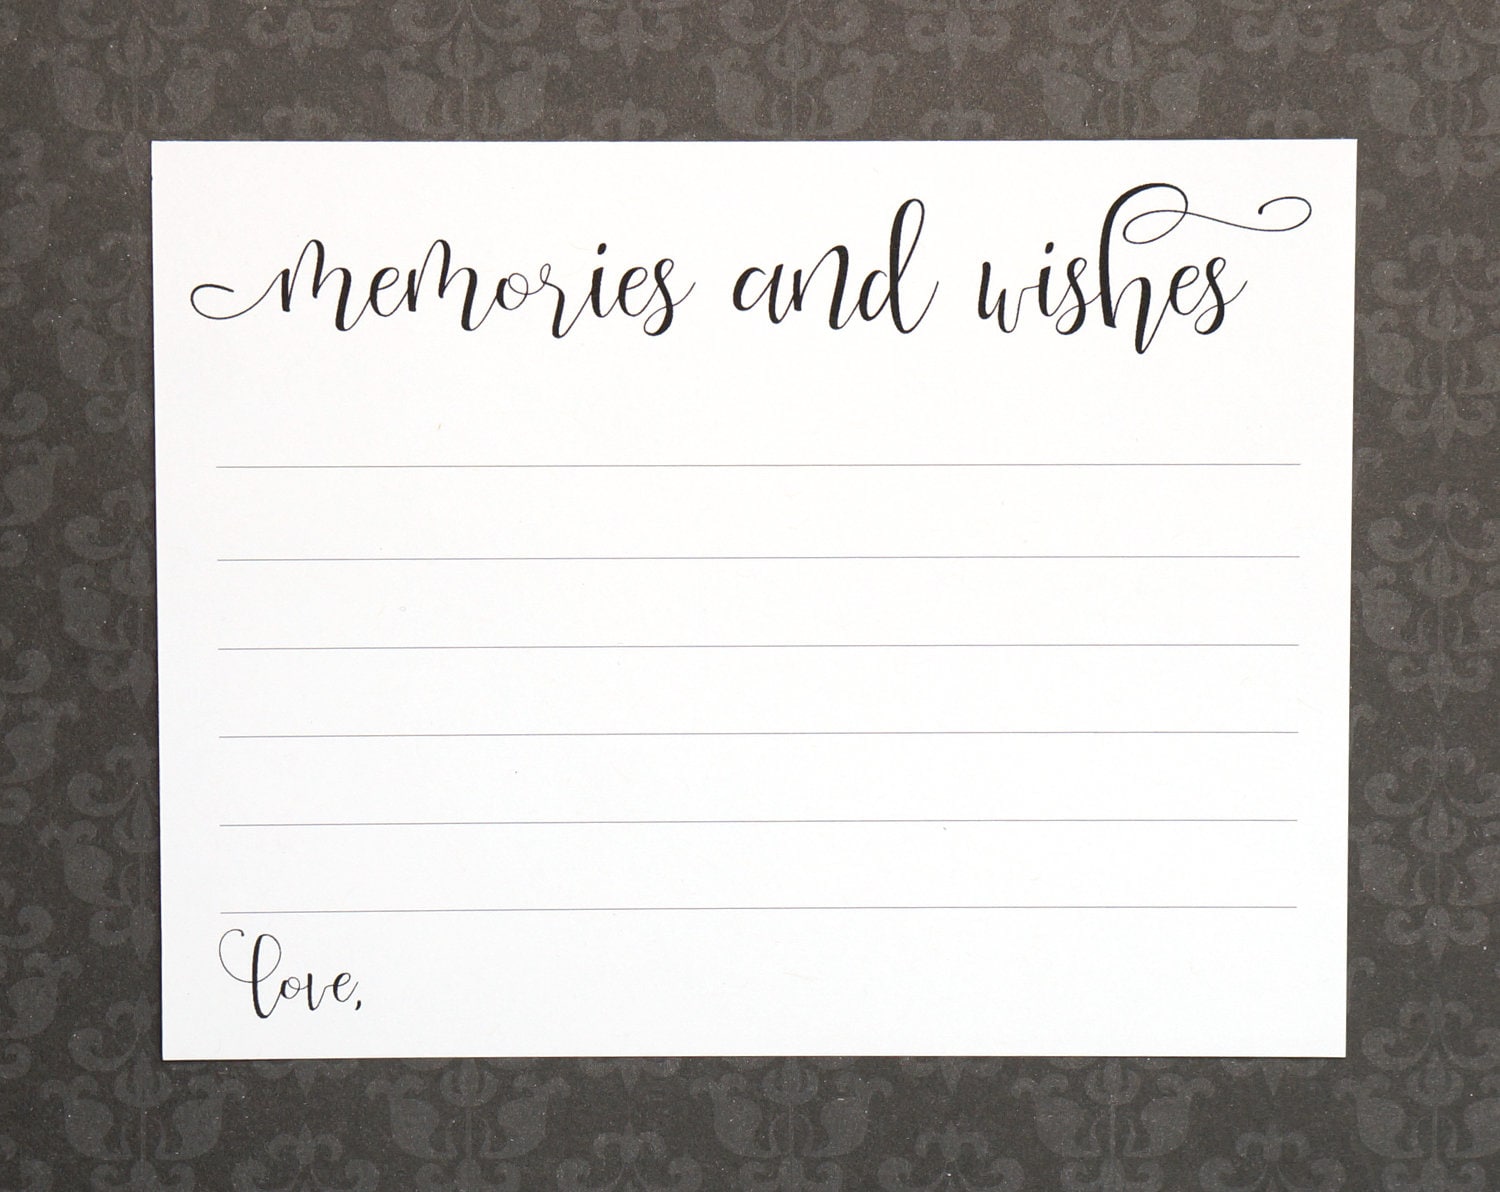 memories and wishes
love,